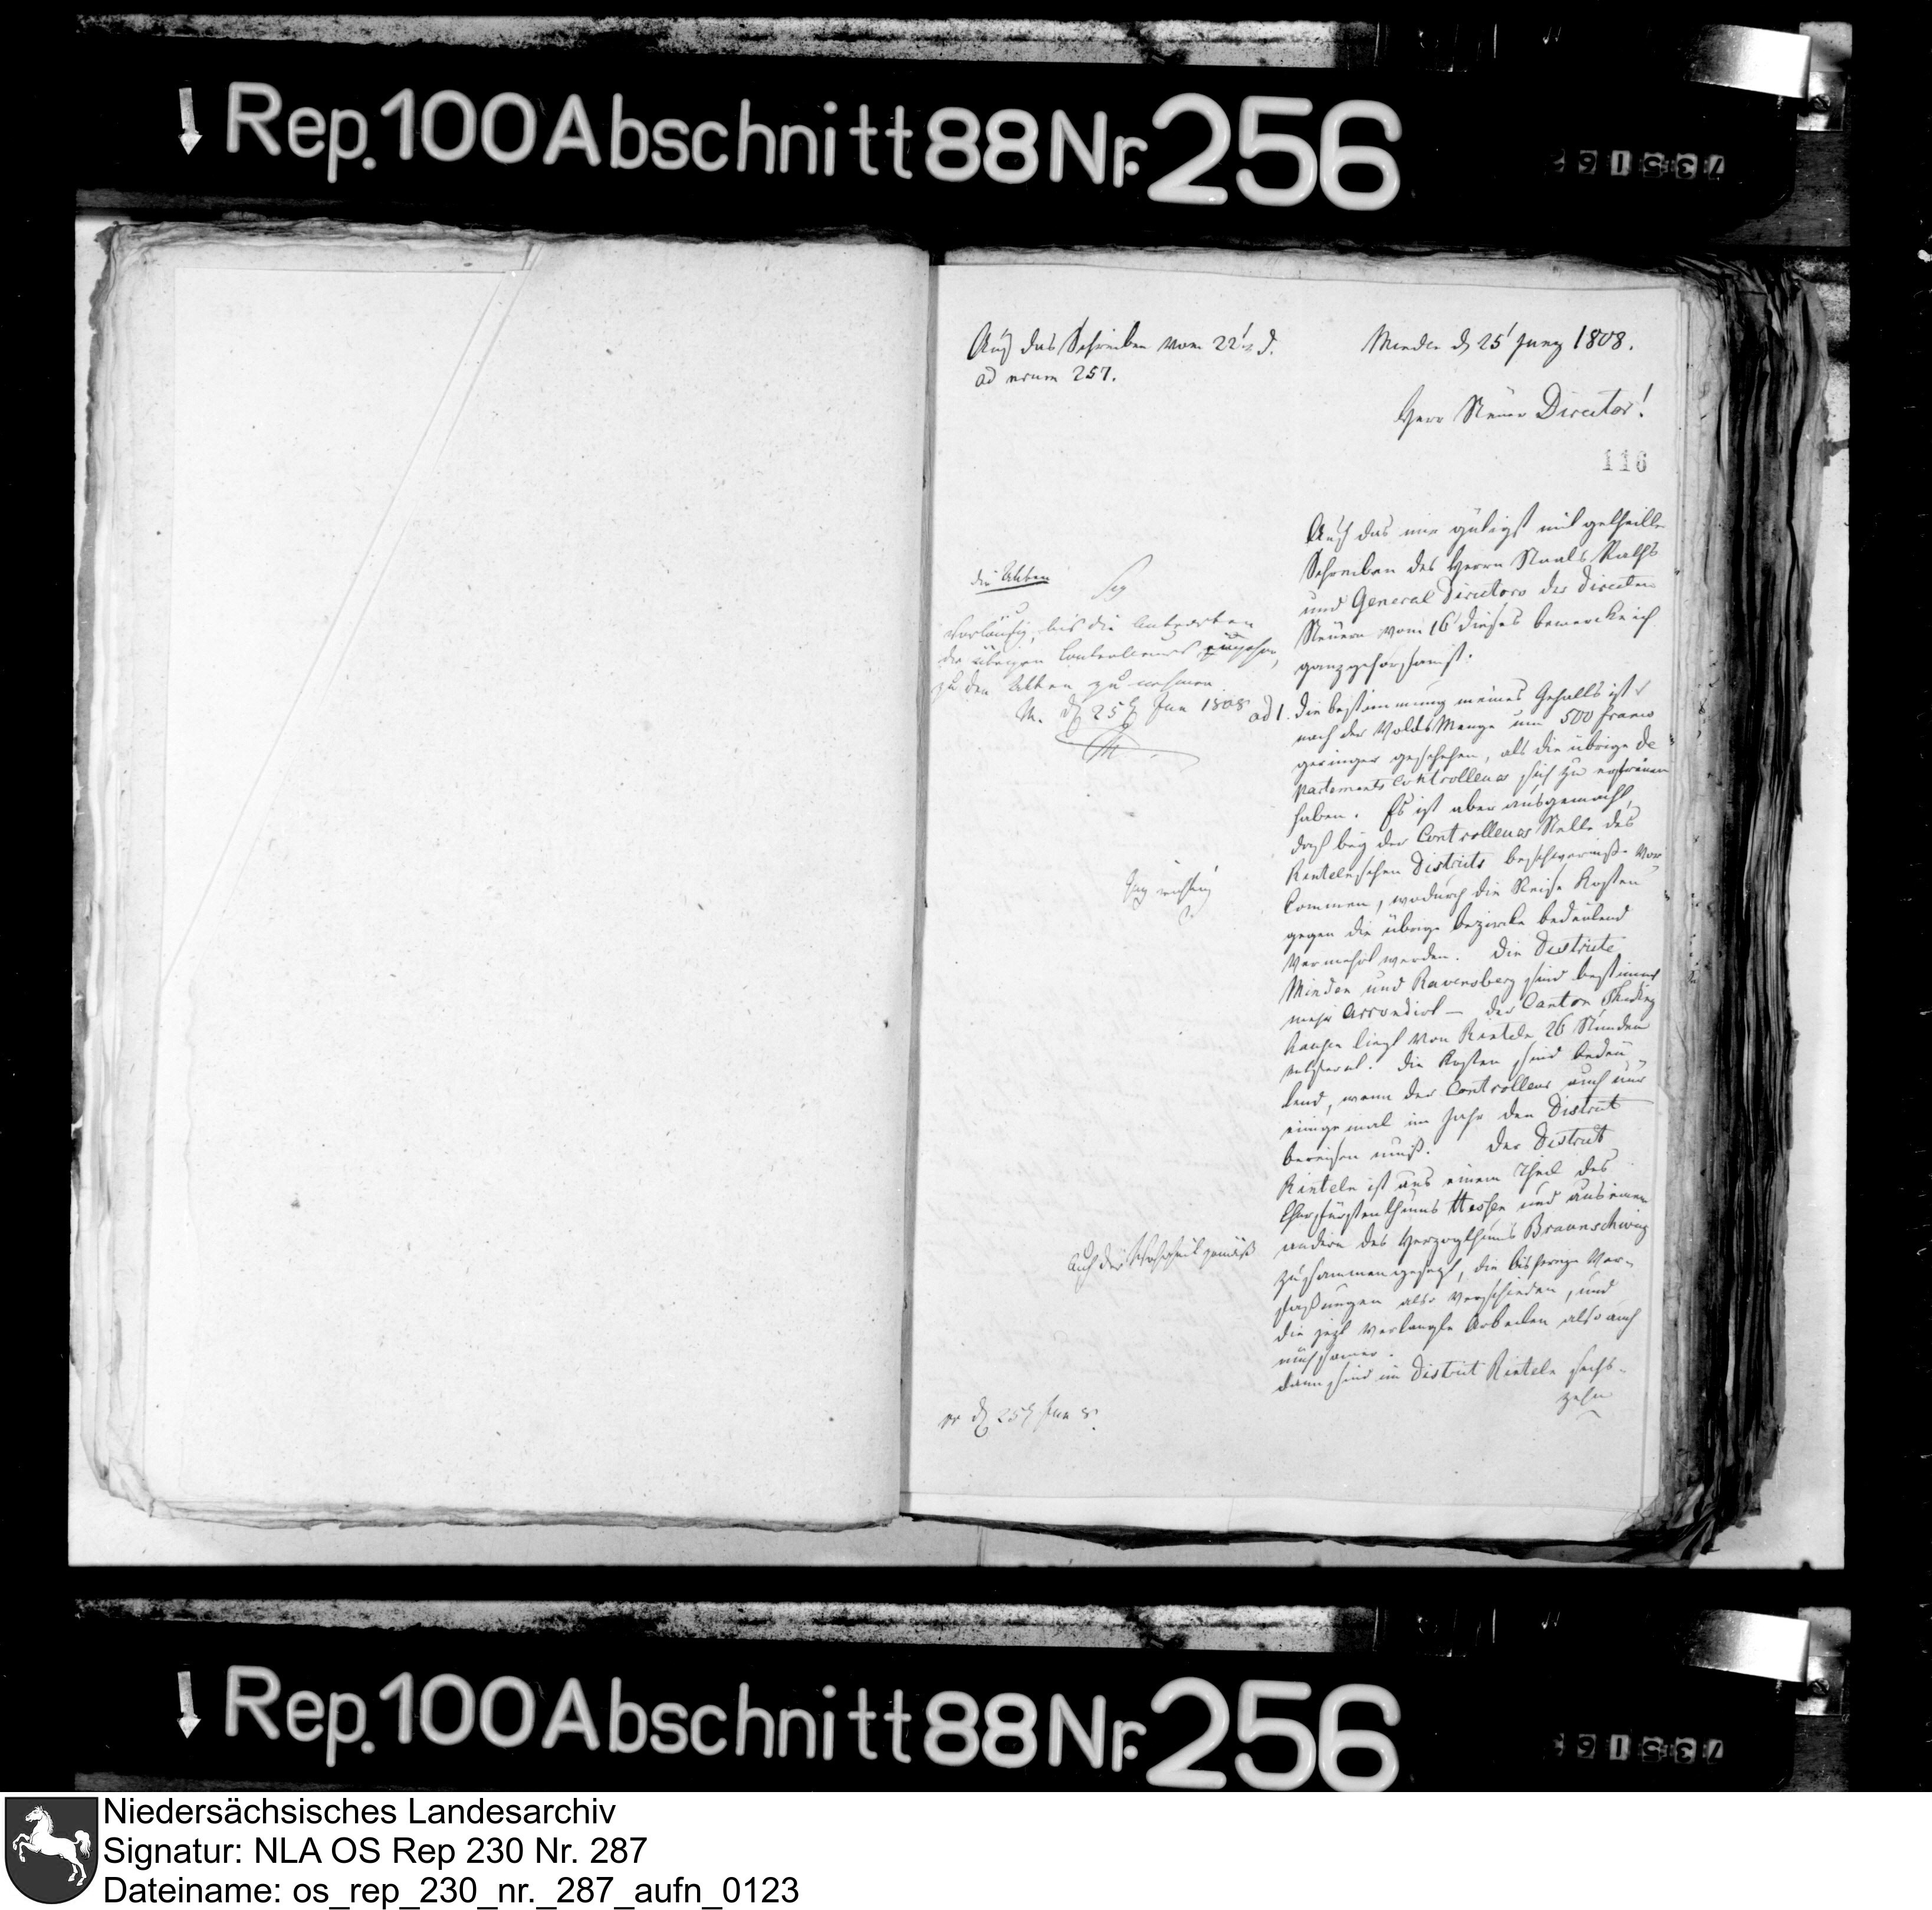 Rep. 100 Abschnitt 88 Nr. 256
735162
Auf das Schreiben vom 22t d.
ad num 257.
Minden d 25t Juny 1808.
Herr Steuer Director!
116
Auf das mir gütigst mit getheilte
Schreiben des Herrn Staats Raths
und General Directors der Directen
Steuern vom 16t dieses bemercke ich
ganz gehorsamst.
ad 1. die bestimmung meines Gehalts ist
nach der Volcks Menge um 500 Francs
geringer geschehen, als die übrige De
partements Controlleurs sich zu erfreuen
haben. Es ist aber ausgemacht,
daß bey der Controlleurs Stelle des
Rintelnschen Districts beschwerniße Vor
Commen, wodurch die Reise Kosten
gegen die übrige bezircke bedeutend
Vermehrt werden. Die Districte
Minden und Ravensberg sind bestimmt
mehr Arrondirt – der Canton
hausen liegt von Rinteln 26 Stunden
entfernt. Die Kosten sind bedeu
tend, wenn der Controlleur auch nur
einigemal im Jahr den District
bereisen muß. Der District
Rinteln ist aus einem Theil des
Churfürstenthums Hessen und aus einem
andern des Herzogthums Braunschweig
zusammengesezt, die bisherige Ver-
faßungen also verschieden, und
die jezt verlangte Arbeiten also auch
mühsamer.
dann sind im District Rinteln sechs-
zehn
die Akten
vorläufig, bis die Antworten
der übrigen Controlleurs eingehen,
zu den Akten zu nehmen
M. d 25t Jun 1808
richtig
Auch der Wahrheit gemäß
pr d 25t Jun 8.
Rep. 100 Abschnitt 88 Nr. 256
735163
Niedersächsisches Landesarchiv
Signatur: NLA OS Rep 230 Nr. 287
Dateiname: os_rep_230_nr._287_aufn_0123